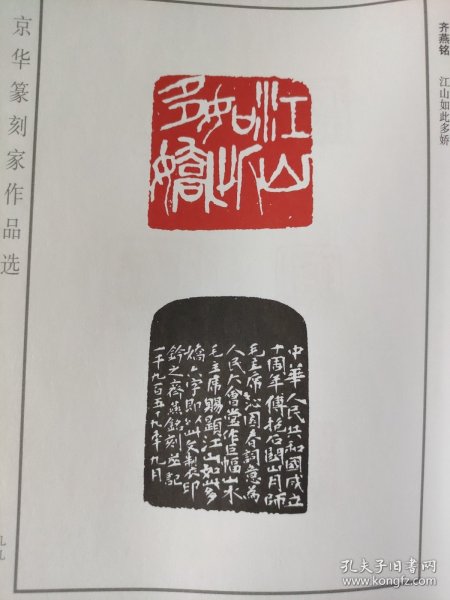 京华篆刻家作品选
齐燕铭 江山如此多娇
江山
如此
多娇
中華人民共和國成立
十周年傅抱石關山月師
毛主席沁園春詞意為
人民大會堂作巨幅山水
毛主席賜題江山如此多
嬌六字即以此文製印
鈐之齊燕銘刻並記
一千九百五十九年九月
九九
孔夫子旧书网
www.kongfz.com